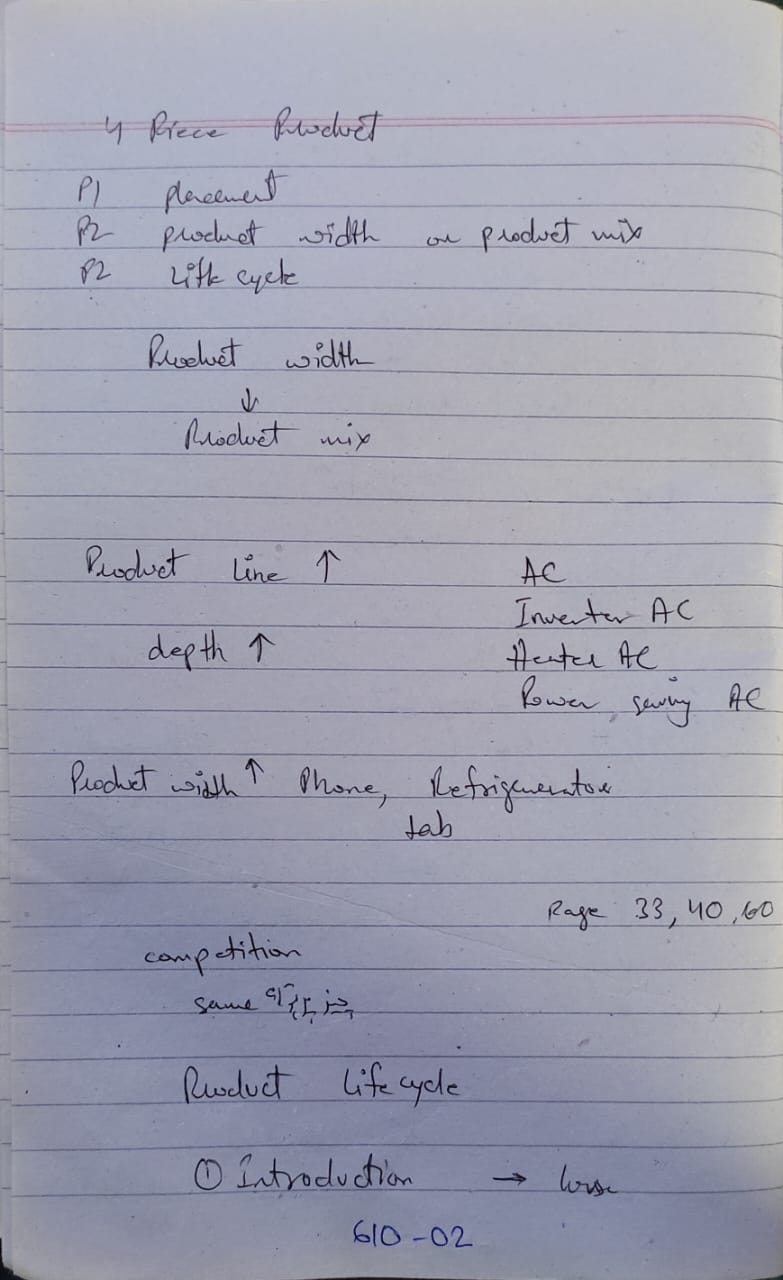 4 Piece Product
P1 placement
P2 product width or product mix
P2 Life cycle
Product width
↓
Product mix
Product Line ↑ AC
Inverter AC
depth ↑ Heater AC
Power saving AC
Product width ↑ Phone, Refrigerator
tab
Page 33, 40, 60
competition
same
Product Life cycle
① Introduction →
610-02